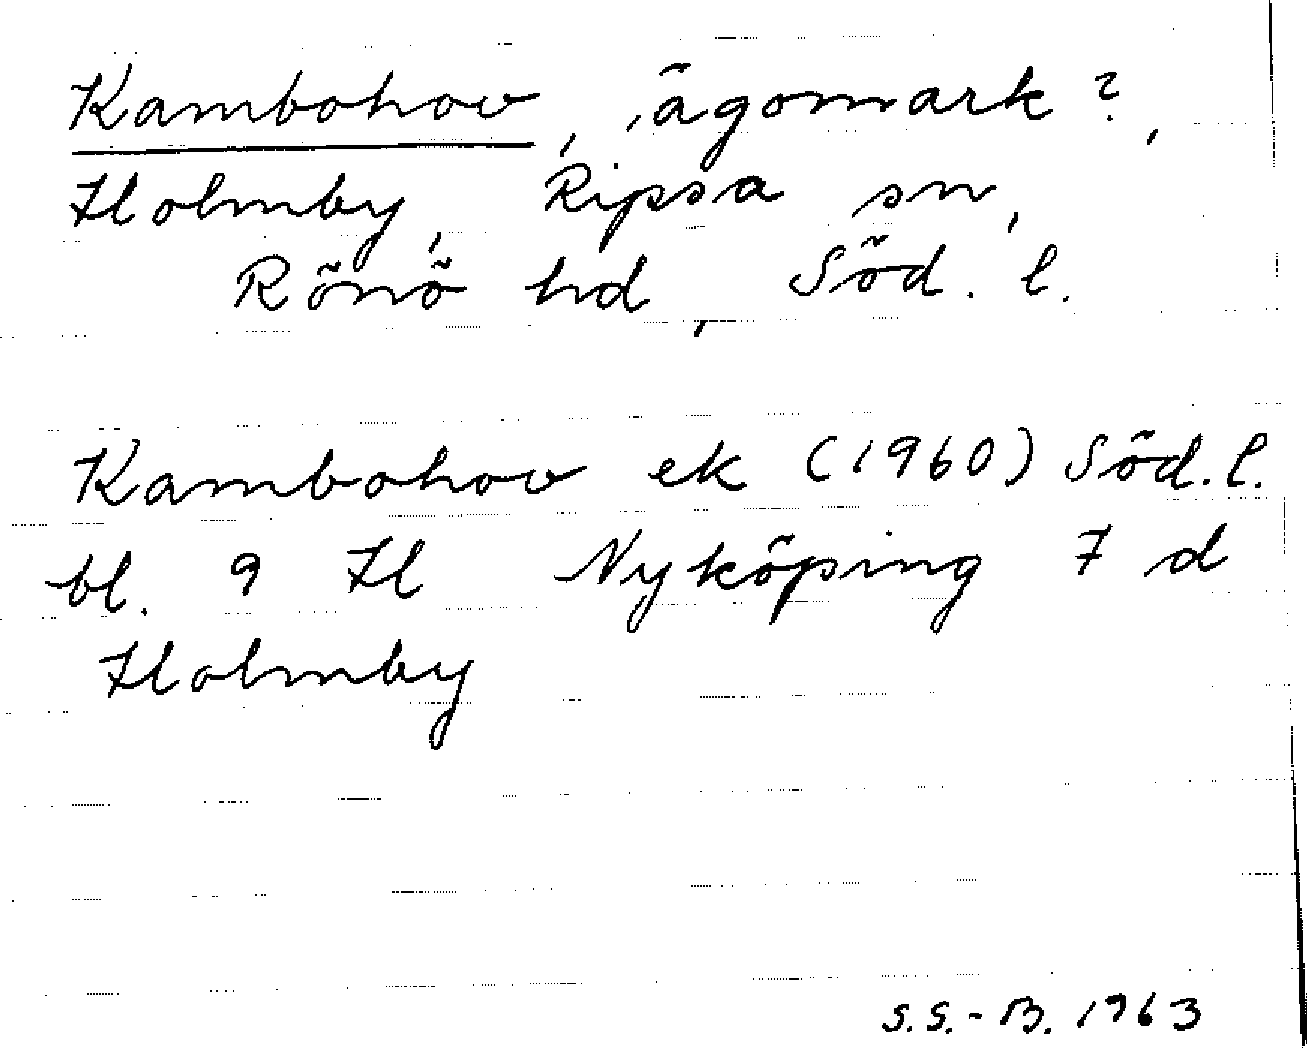 Kambohov, ägomark?,
Holmby, Ripsa sn,
Rönö hd, Söd. l.
Kambohov ek (1960) Söd. l.
bl. 9 H Nyköping 7 d
Holmby
S.S.-B. 1963